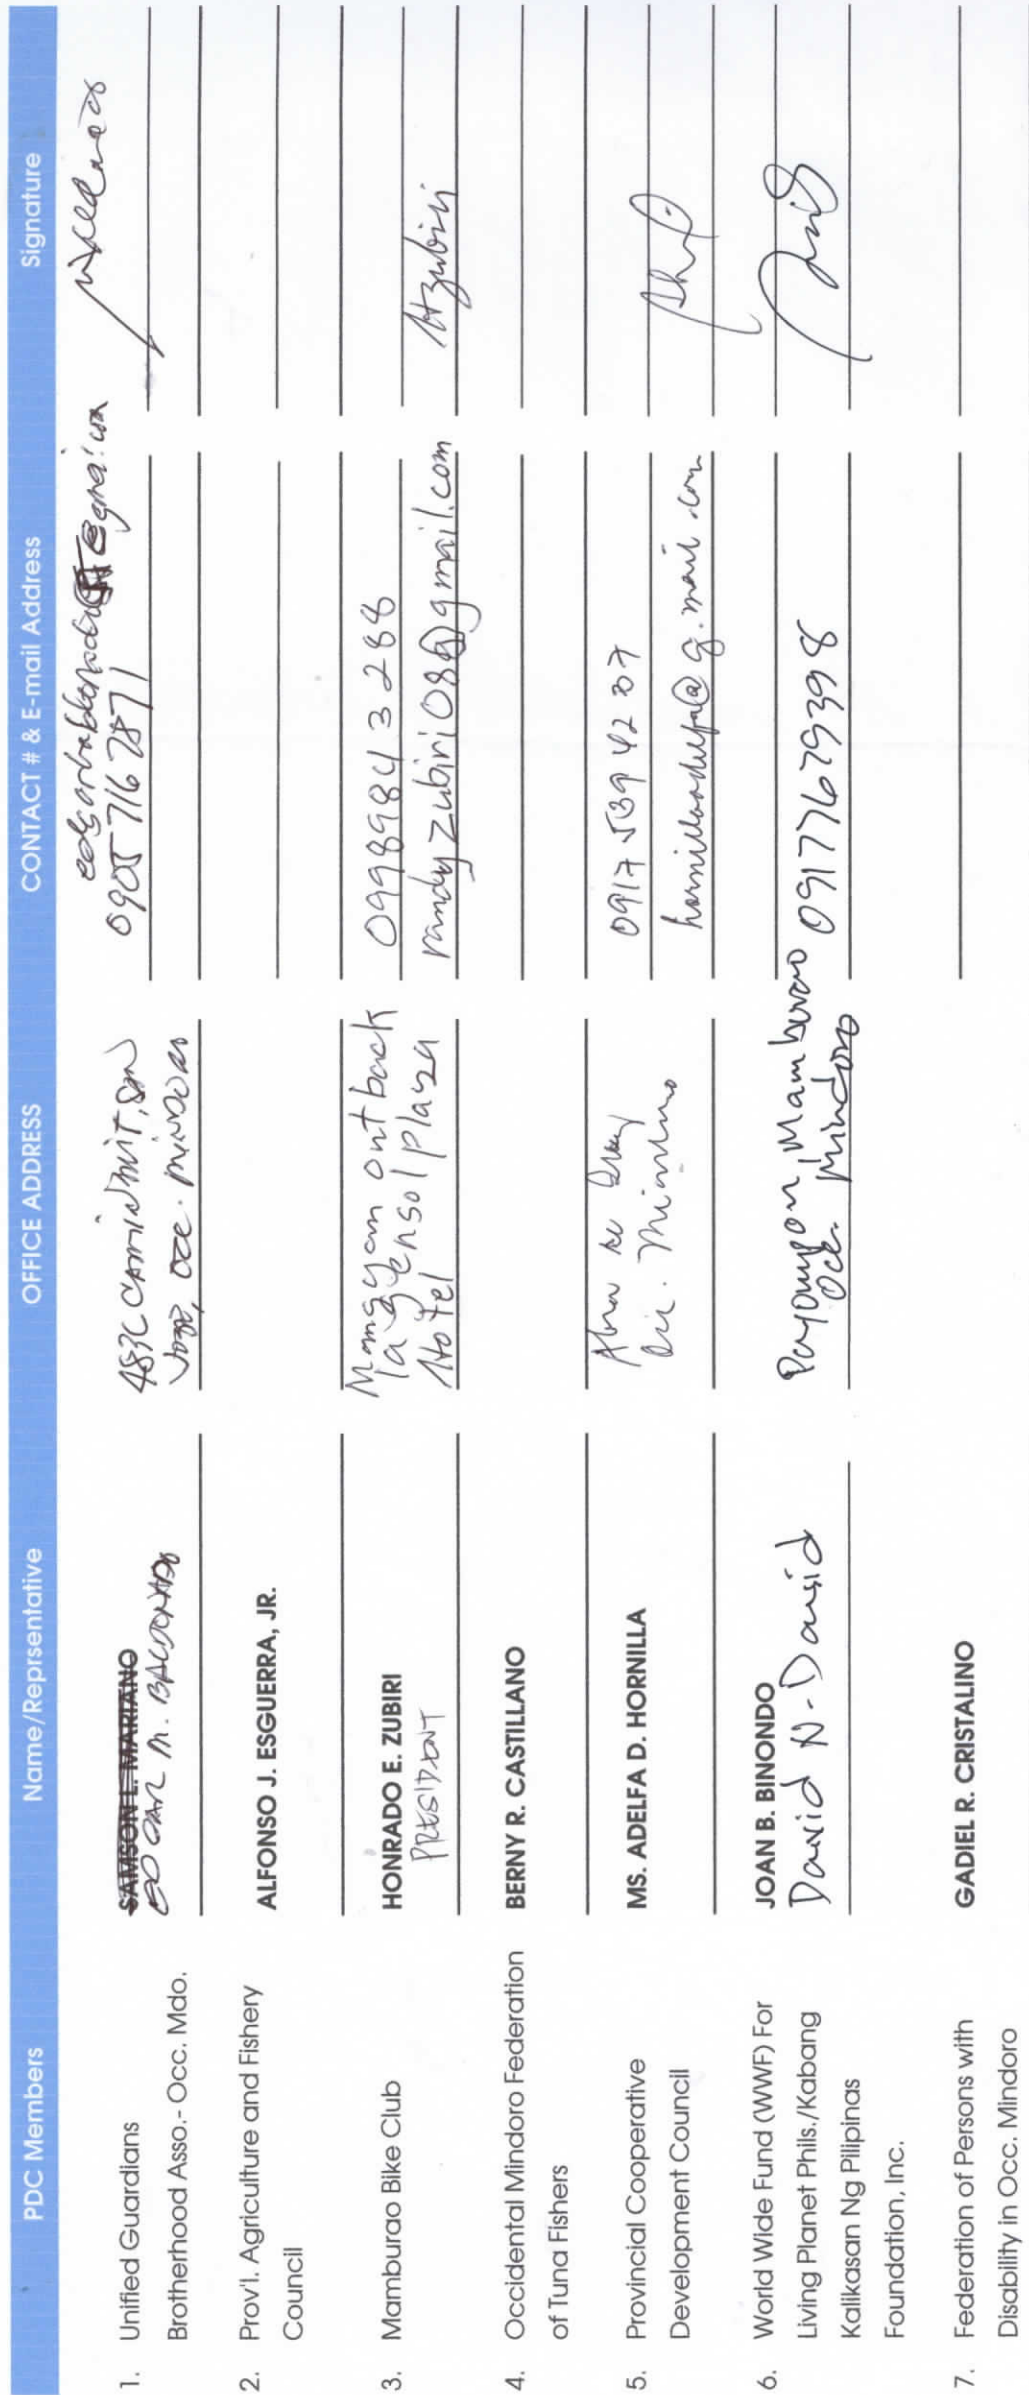 PDC Members Name/Reprsentative OFFICE ADDRESS CONTACT # & E-mail Address Signature
1. Unified Guardians
Brotherhood Asso.- Occ. Mdo.
SAMSON L. MARIANO
M. BALDONADO
483C CAMINAWIT, San
Jose, Occ. Mindoro
0905 716 7871
2. Prov'l. Agriculture and Fishery
Council
ALFONSO J. ESGUERRA, JR.
3. Mamburao Bike Club
HONRADO E. ZUBIRI
PRESIDENT
Mangyan outback
la gensol plaza
Hotel
09989843288
randyzubiri08@gmail.com
Hzubiri
4. Occidental Mindoro Federation
of Tuna Fishers
BERNY R. CASTILLANO
5. Provincial Cooperative
Development Council
MS. ADELFA D. HORNILLA
Abra de
Occ. Mindoro
0917 539 42 37
hornillaadelfa@g.mail.com
6. World Wide Fund (WWF) For
Living Planet Phils./Kabang
Kalikasan Ng Pilipinas
Foundation, Inc.
JOAN B. BINONDO
David N. David
Payompon, Mamburao
Occ. Mindoro
09177679398
7. Federation of Persons with
Disability in Occ. Mindoro
GADIEL R. CRISTALINO